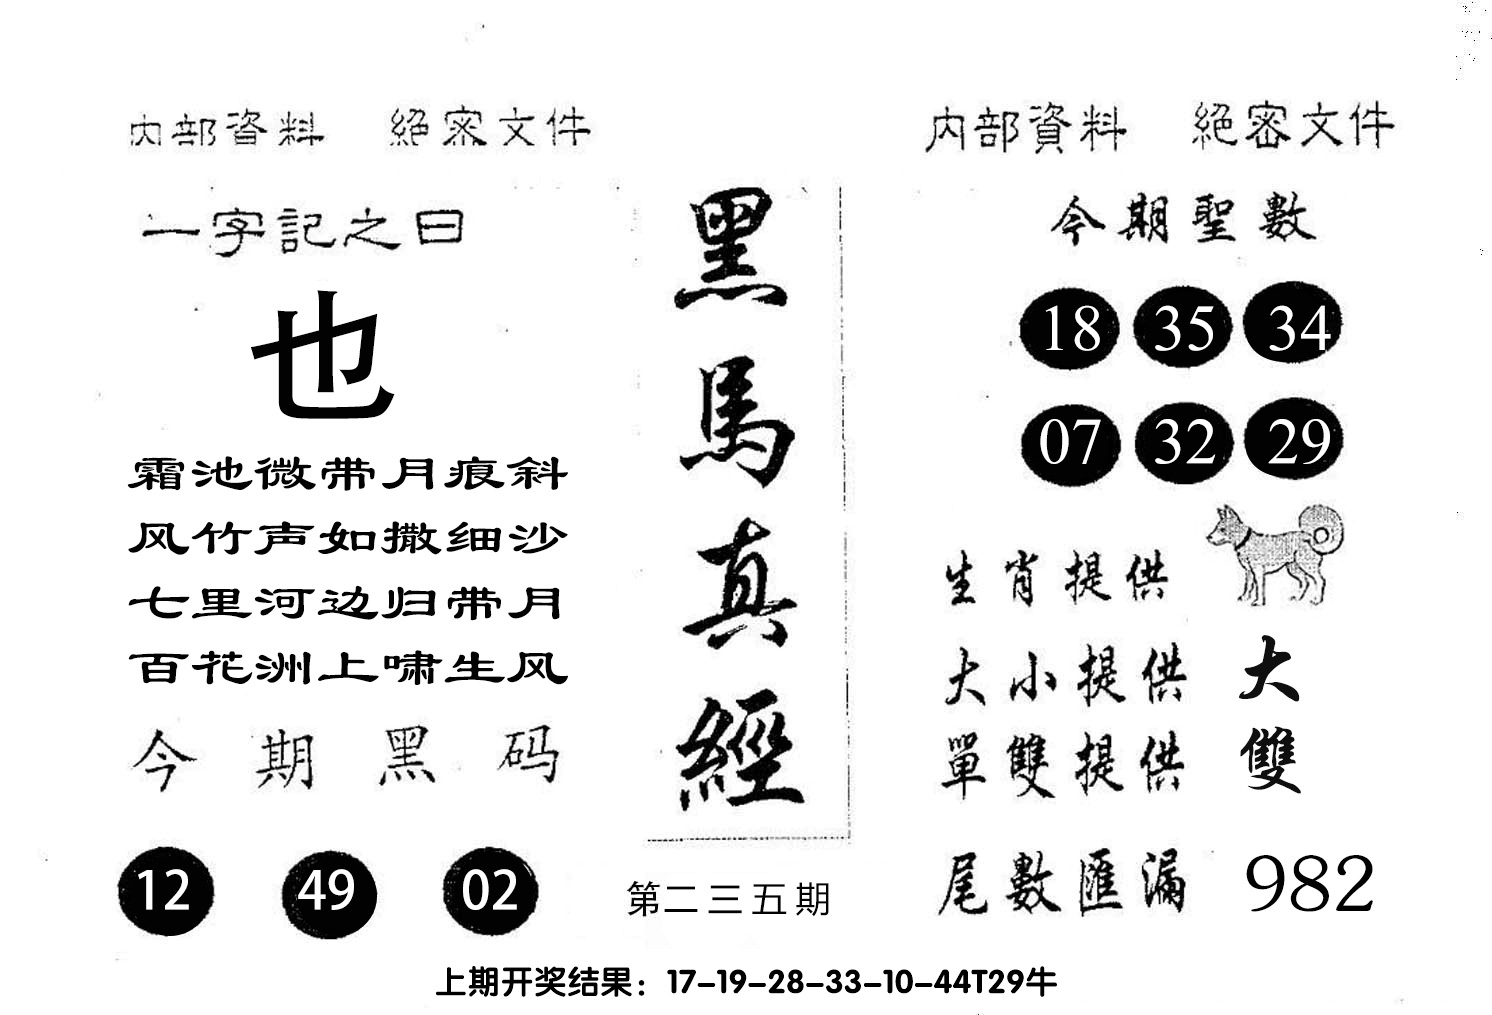 内部資料 絕密文件
一字記之日
也
霜池微带月痕斜
风竹声如撒细沙
七里河边归带月
百花洲上啸生风
今期黑码
12 49 02
黑馬真經
第二三五期
内部資料 絕密文件
今期聖數
18 35 34
07 32 29
生肖提供
大小提供 大
單雙提供 雙
尾數匯漏 982
上期开奖结果：17-19-28-33-10-44T29牛